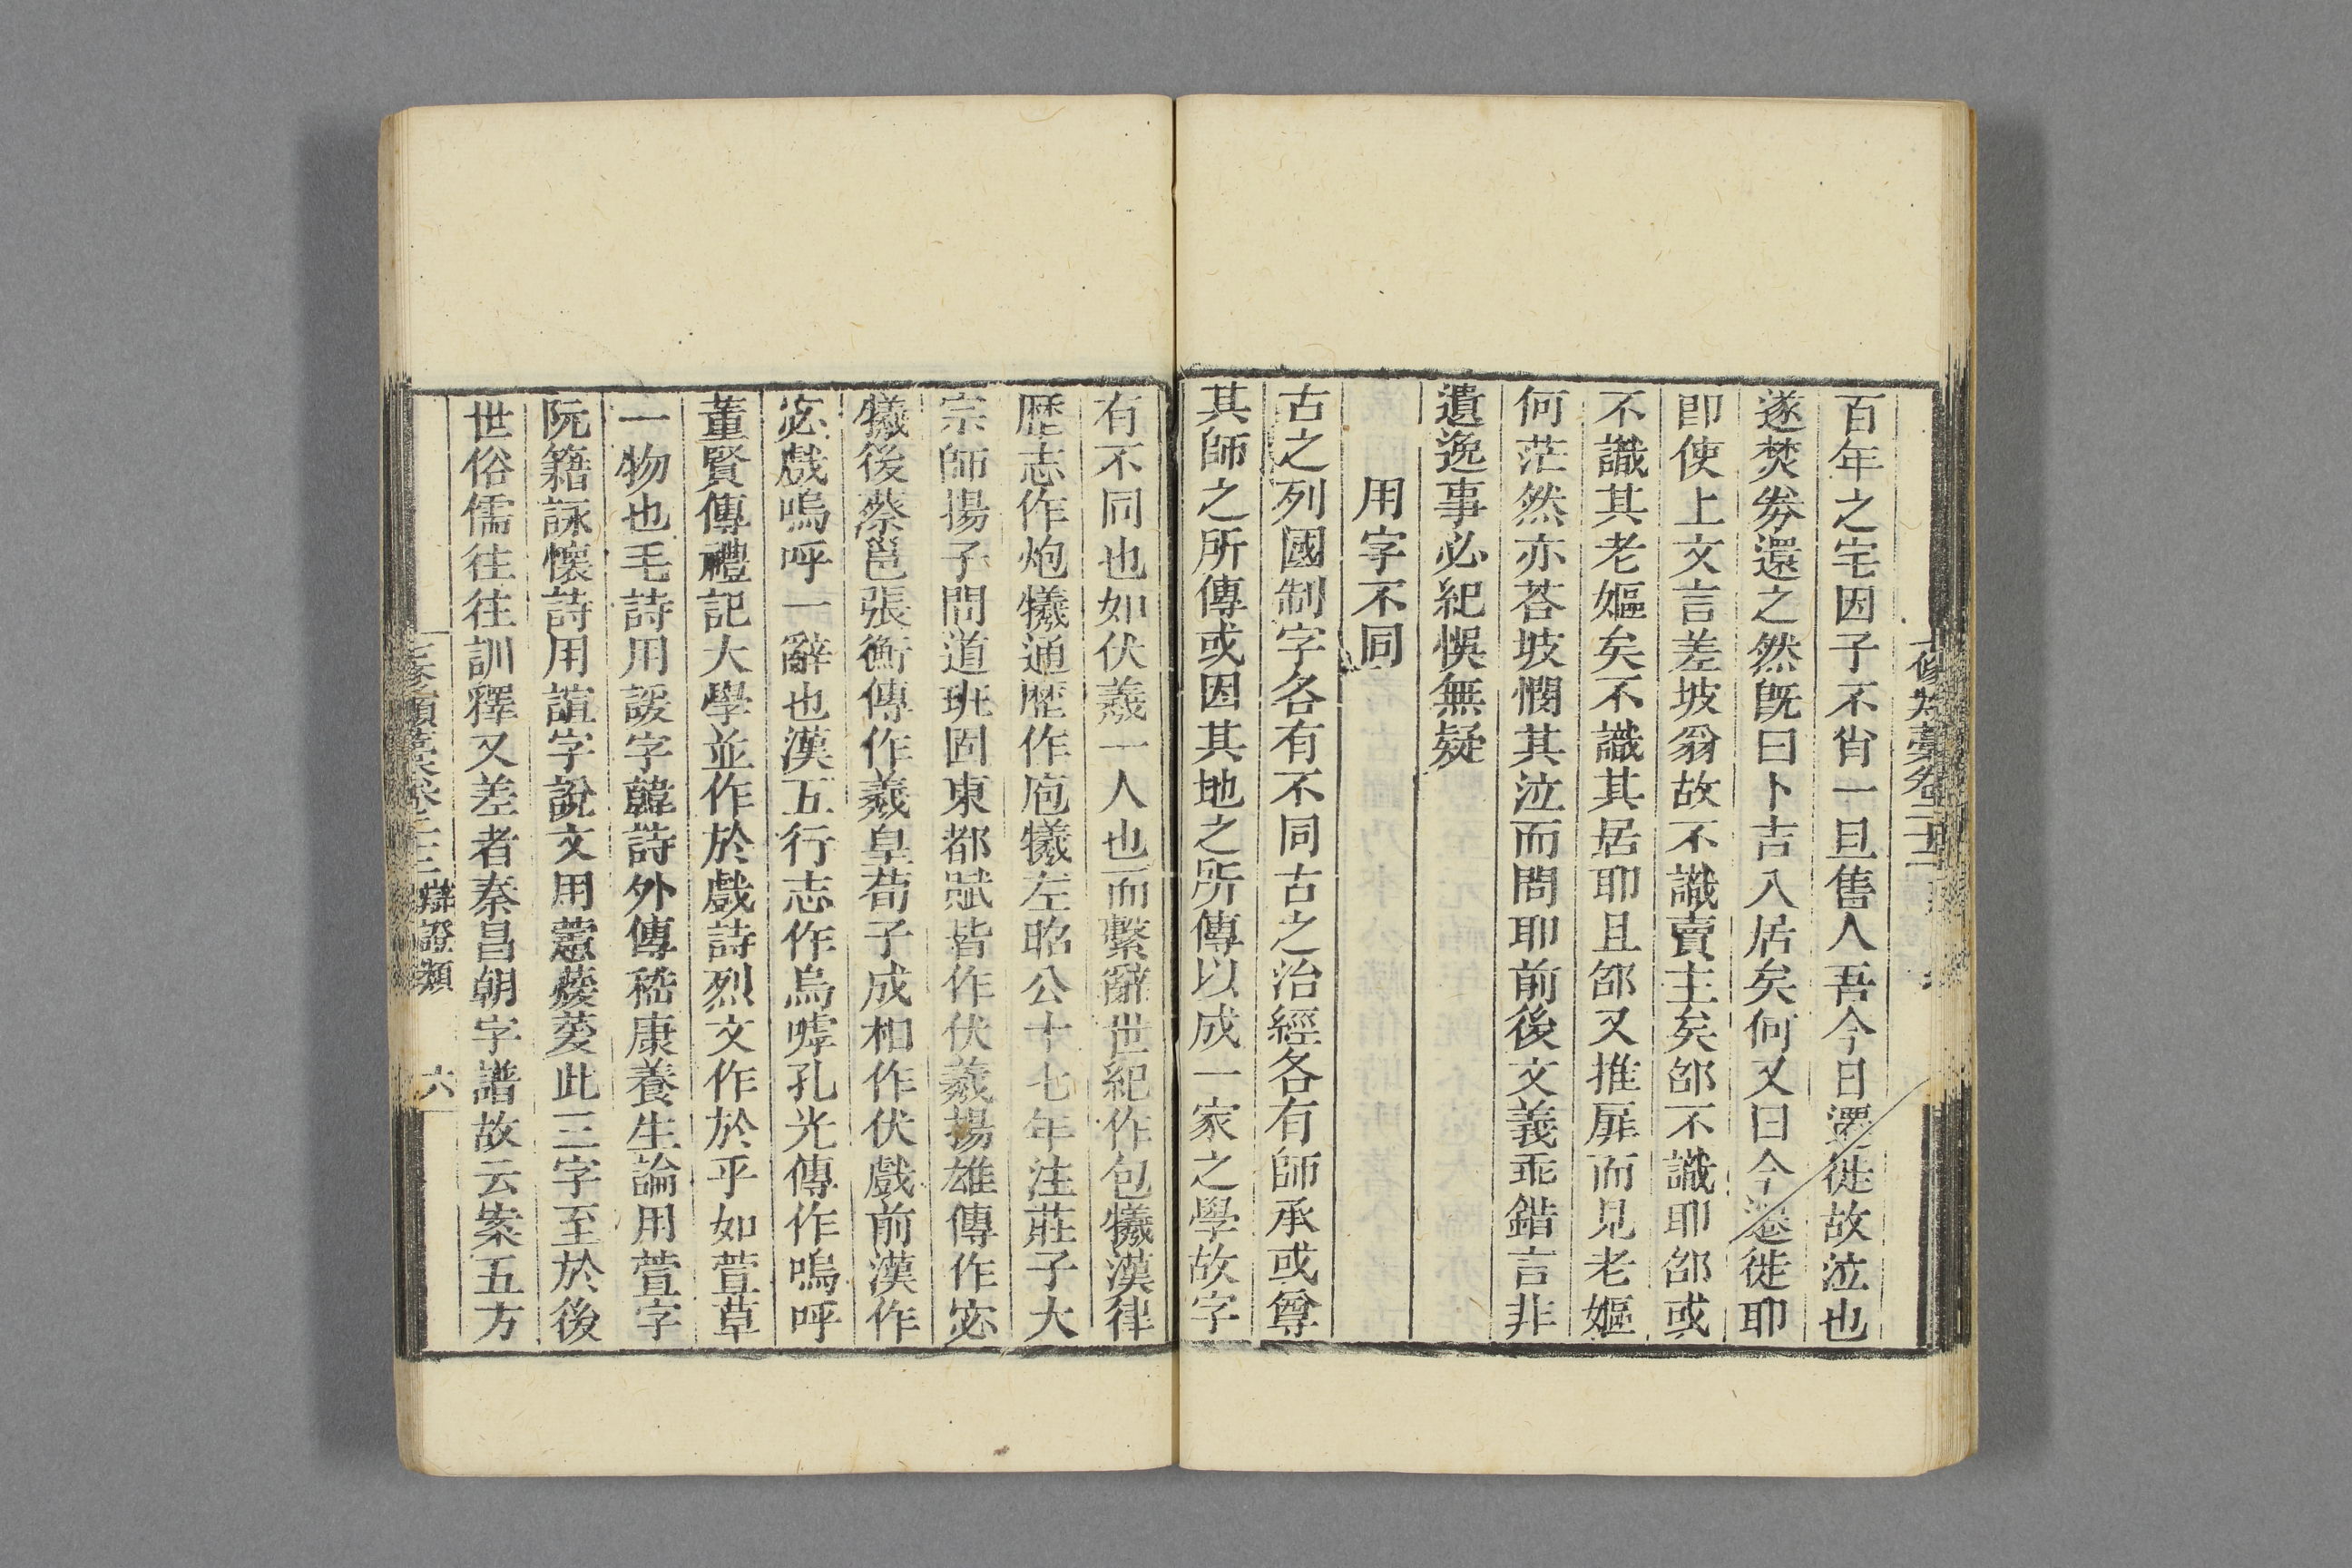 百年之宅因子不肖一旦售人吾今日遷徙故泣也
遂焚券還之然旣曰卜吉入居矣何又曰今遷徙耶
卽使上文言差坡翁故不識賣主矣邵不識耶邵或
不識其老嫗矣不識其居耶且邵又推扉而見老嫗
何茫然亦荅坡憫其泣而問耶前後文義乖錯言非
遺逸事必紀悞無疑
用字不同
古之列國制字各有不同古之治經各有師承或尊
其師之所傳或因其地之所傳以成一家之學故字
有不同也如伏羲一人也而繫辭世紀作包犧漢律
歷志作炮犧通歷作庖犧左昭公十七年注莊子大
宗師揚子問道班固東都賦皆作伏羲揚雄傳作宓
犧後蔡邕張衡傳作羲皇荀子成相作伏戲前漢作
宓戲嗚呼一辭也漢五行志作烏嘑孔光傳作嗚呼
董賢傳禮記大學並作於戲詩烈文作於乎如萱草
一物也毛詩用諼字韓詩外傳嵇康養生論用萱字
阮籍詠懷詩用諠字說文用藼蕿萲此三字至於後
世俗儒往往訓釋又差者秦昌朝字譜故云案五方
辯證類
六